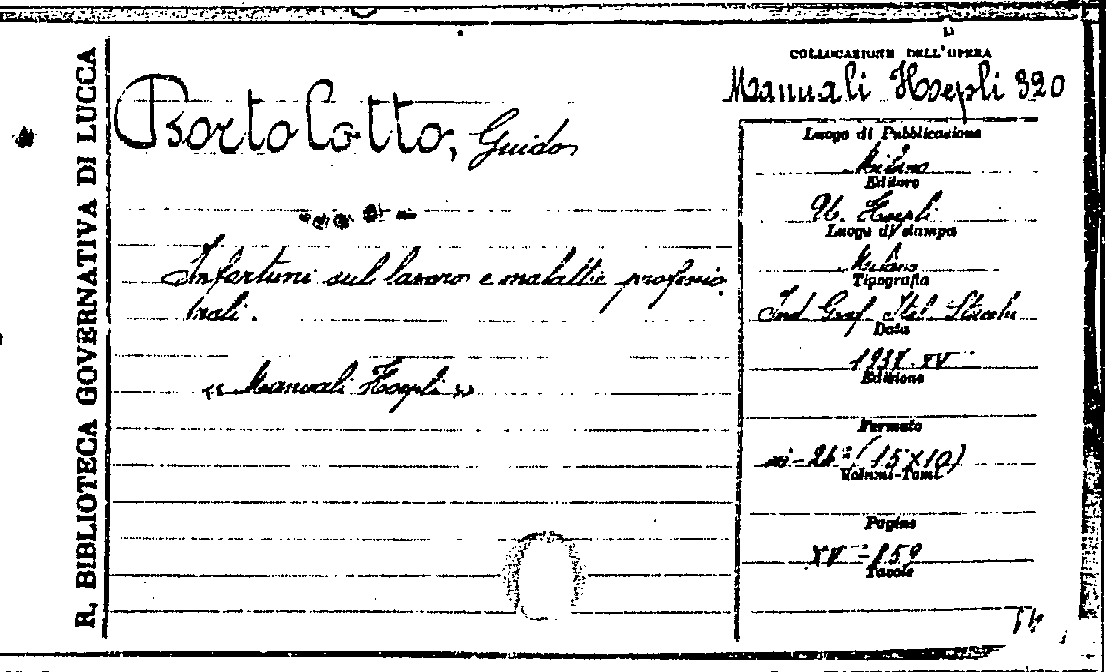 R. BIBLIOTECA GOVERNATIVA DI LUCCA
Bortolotto, Guido
Infortuni sul lavoro e malattie professio
nali.
«Manuali Hoepli»
COLLOCAZIONE DELL'OPERA
Manuali Hoepli 320
Luogo di Pubblicazione
Milano
Editore
U. Hoepli
Luogo di stampa
Milano
Tipografia
Ind Graf Ital Stucchi
Data
1937-XV
Edizione
Formato
in-24° (15X10)
Volumi-Tomi
Pagine
XV-159
Tavole